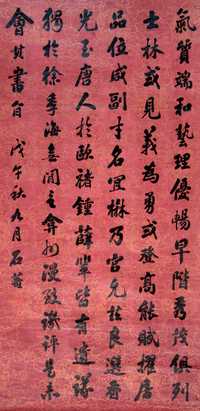 氣質端和藝理優暢早階秀茂俱列
士林或見義為勇或登高能賦擢居
品位咸副才名宜楙乃官允於良選
唐人於歐褚鍾薛輩皆有遺
獨於徐季海無間言弇州漫致譏評是未
會其書旨 戊午秋九月 石菴